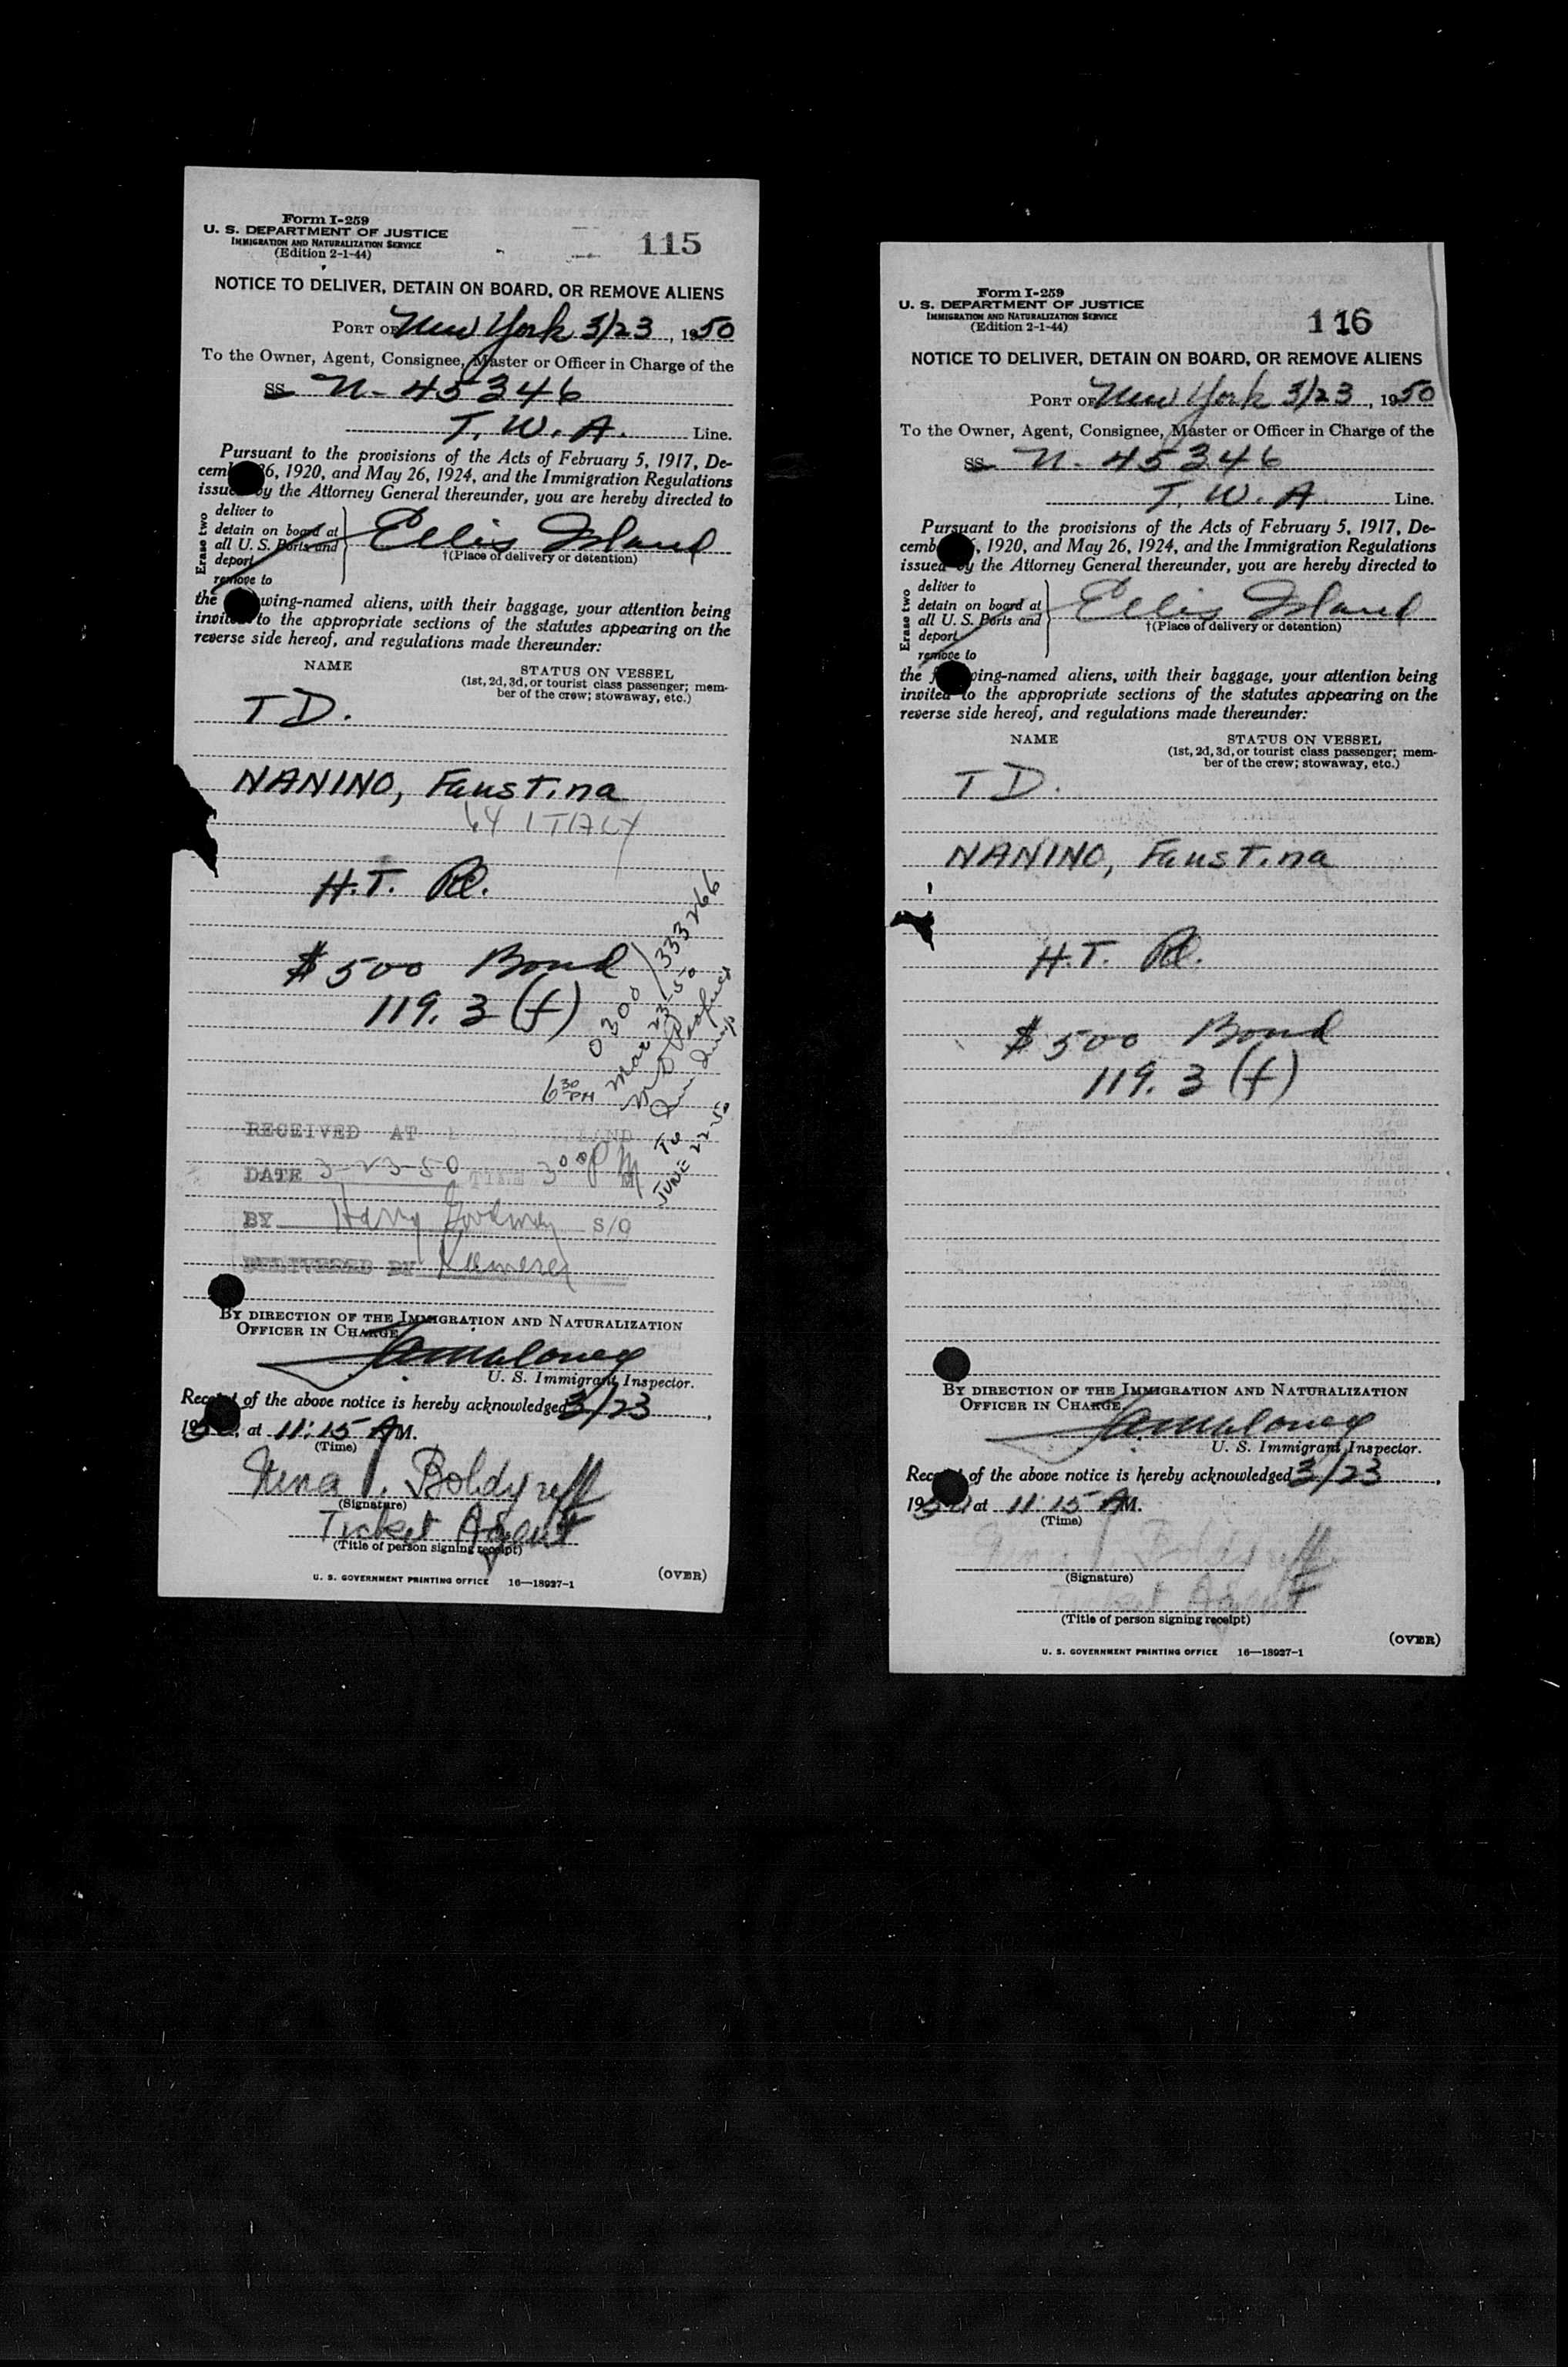 Form I-259
U. S. DEPARTMENT OF JUSTICE
IMMIGRATION AND NATURALIZATION SERVICE
(Edition 2-1-44)
115
NOTICE TO DELIVER, DETAIN ON BOARD, OR REMOVE ALIENS
PORT OF New York 3/23, 1950
To the Owner, Agent, Consignee, Master or Officer in Charge of the
SS N-45346
T. W. A. Line.
Pursuant to the provisions of the Acts of February 5, 1917, De-
cem 26, 1920, and May 26, 1924, and the Immigration Regulations
issued by the Attorney General thereunder, you are hereby directed to
Erase two
deliver to
detain on board at
all U. S. Ports and
deport
remove to
Ellis Island
†(Place of delivery or detention)
the wing-named aliens, with their baggage, your attention being
invited to the appropriate sections of the statutes appearing on the
reverse side hereof, and regulations made thereunder:
NAME
STATUS ON VESSEL
(1st, 2d, 3d, or tourist class passenger; mem-
ber of the crew; stowaway, etc.)
TD.
NANINO, Faustina
64 ITALY
H.T. Pd.
$500 Bond
119.3 (f)
0300/333266
Mar 23-50
6 30 PM
To
JUNE 22-50
RECEIVED AT ISLAND
DATE 3-23-50 TIME 3 00 P M
BY Harry S/O
DELIVERED BY
BY DIRECTION OF THE IMMIGRATION AND NATURALIZATION
OFFICER IN CHARGE
U. S. Immigrant Inspector.
Receipt of the above notice is hereby acknowledged 3/23,
1950, at 11:15 AM.
(Time)
Nina I. Boldyreff
(Signature)
Ticket Agent
(Title of person signing receipt)
(OVER)
U. S. GOVERNMENT PRINTING OFFICE 16—18927-1
Form I-259
U. S. DEPARTMENT OF JUSTICE
IMMIGRATION AND NATURALIZATION SERVICE
(Edition 2-1-44)
116
NOTICE TO DELIVER, DETAIN ON BOARD, OR REMOVE ALIENS
PORT OF New York 3/23, 1950
To the Owner, Agent, Consignee, Master or Officer in Charge of the
SS N-45346
T. W. A. Line.
Pursuant to the provisions of the Acts of February 5, 1917, De-
cemb , 1920, and May 26, 1924, and the Immigration Regulations
issued by the Attorney General thereunder, you are hereby directed to
Erase two
deliver to
detain on board at
all U. S. Ports and
deport
remove to
Ellis Island
†(Place of delivery or detention)
the f wing-named aliens, with their baggage, your attention being
invited to the appropriate sections of the statutes appearing on the
reverse side hereof, and regulations made thereunder:
NAME
STATUS ON VESSEL
(1st, 2d, 3d, or tourist class passenger; mem-
ber of the crew; stowaway, etc.)
TD.
NANINO, Faustina
H.T. Pd.
$500 Bond
119.3 (f)
BY DIRECTION OF THE IMMIGRATION AND NATURALIZATION
OFFICER IN CHARGE.
U. S. Immigrant Inspector.
Receipt of the above notice is hereby acknowledged 3/23,
1950, at 11:15 AM.
(Time)
Nina I. Boldyreff
(Signature)
Ticket Agent
(Title of person signing receipt)
(OVER)
U. S. GOVERNMENT PRINTING OFFICE 16—18927-1